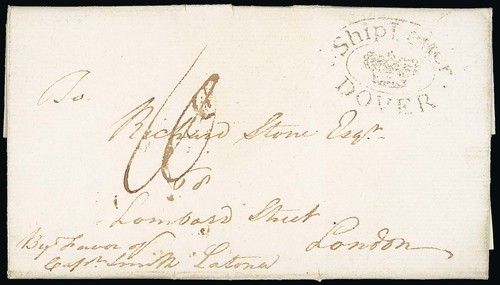 Ship Letter
DOVER
To
Richard Stone Esqr
68
Lombard Street
London
By favor of
Captn Smith Latona